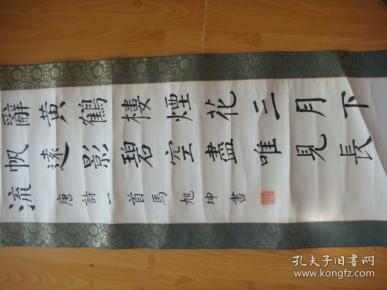 辭黃鶴樓煙花三月下
帆遠影碧空盡唯見長
流
唐詩一首馬旭坤書
孔夫子旧书网
www.kongfz.com